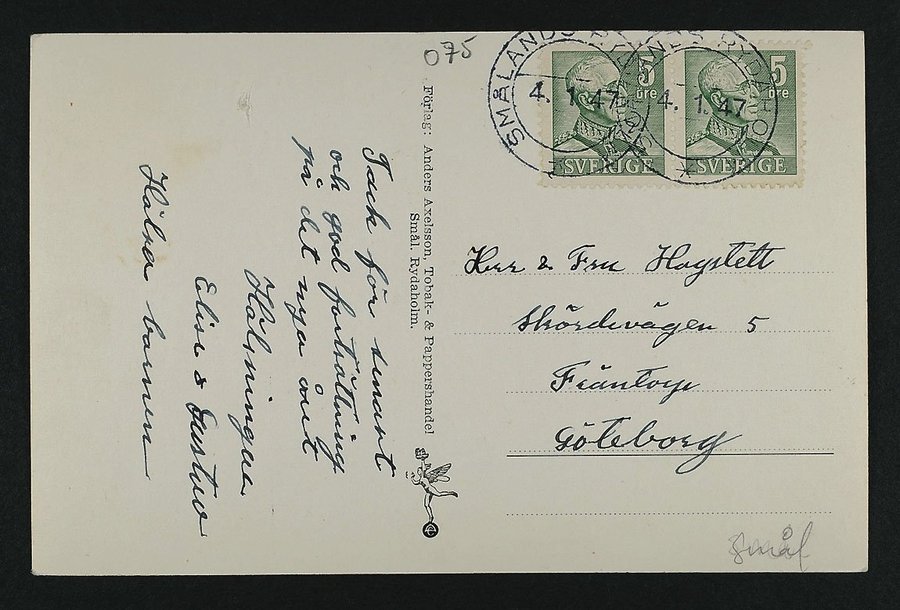 075
SMÅLANDS RYDAHOLM
4. 1. 47
4. 1. 47
5
öre
SVERIGE
5
öre
SVERIGE
Tack för senast
och god fortsättning
på det nya året
Hälsningar
Elisa & Gustav
Hälsa barnen
Förlag: Anders Axelsson, Tobak- & Pappershandel
Smål. Rydaholm.
Herr & Fru Hogstett
Skördevägen 5
Fräntorp
Göteborg
Smål